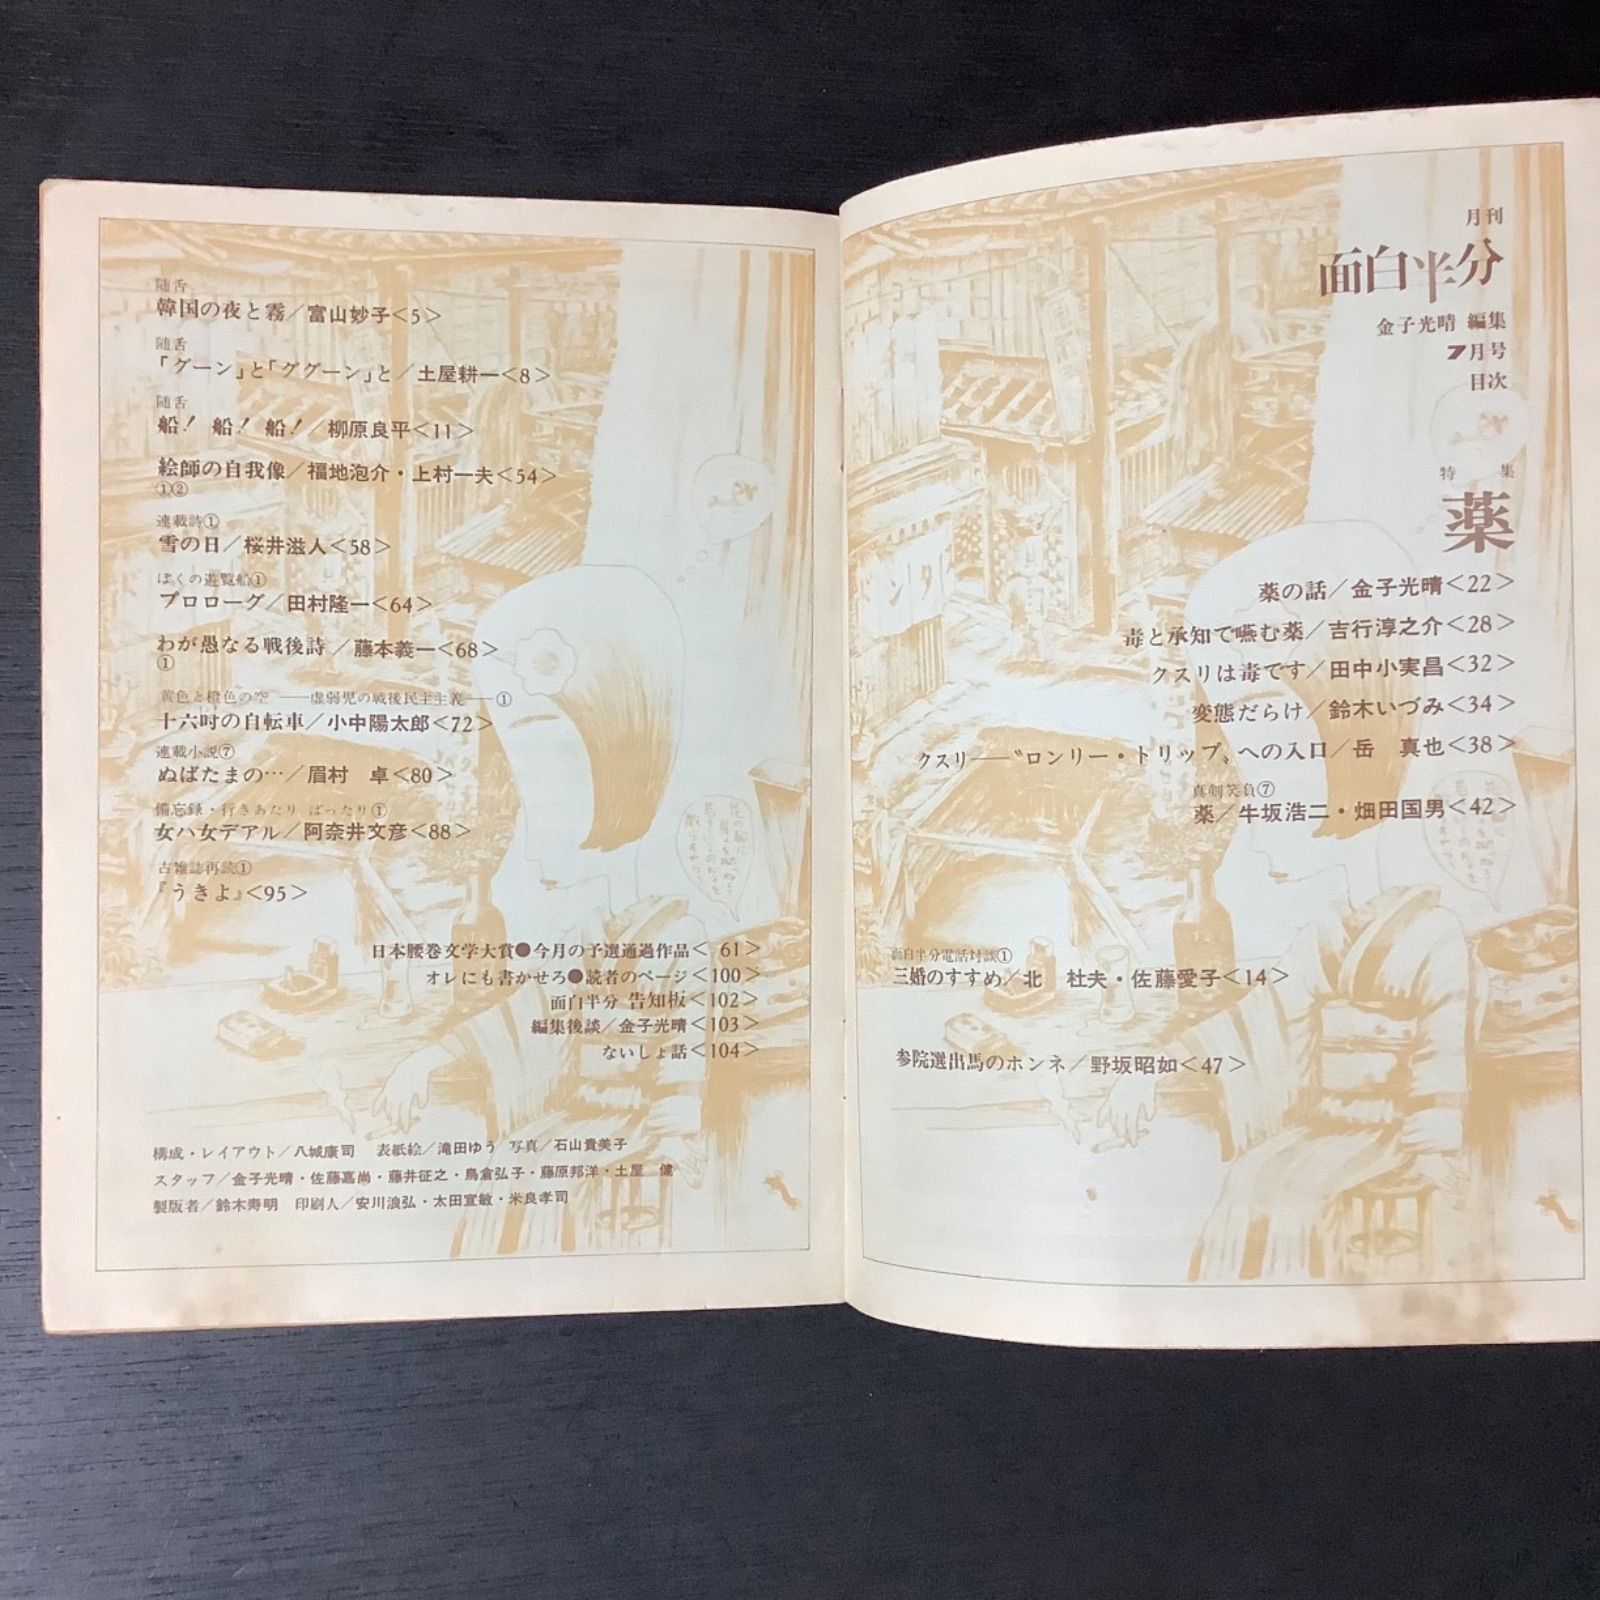 月刊
面白半分
金子光晴 編集
7月号
目次
特集
薬
薬の話／金子光晴<22>
毒と承知で嚥む薬／吉行淳之介<28>
クスリは毒です／田中小実昌<32>
変態だらけ／鈴木いづみ<34>
クスリ――〝ロンリー・トリップ〟への入口／岳　真也<38>
真剣笑負⑦
薬／牛坂浩二・畑田国男<42>
面白半分電話対談①
三婚のすすめ／北　杜夫・佐藤愛子<14>
参院選出馬のホンネ／野坂昭如<47>
随舌
韓国の夜と霧／富山妙子<5>
随舌
「グーン」と「ググーン」と／土屋耕一<8>
随舌
船！ 船！ 船！／柳原良平<11>
絵師の自我像／福地泡介・上村一夫<54>
①②
連載詩①
雪の日／桜井滋人<58>
ぼくの遊覧船①
プロローグ／田村隆一<64>
わが愚なる戦後詩／藤本義一<68>
①
黄色と橙色の空――虚弱児の戦後民主主義――①
十六吋の自転車／小中陽太郎<72>
連載小説⑦
ぬばたまの…／眉村　卓<80>
備忘録・行きあたり ばったり①
女ハ女デアル／阿奈井文彦<88>
古雑誌再読①
『うきよ』<95>
日本腰巻文学大賞●今月の予選通過作品< 61>
オレにも書かせろ●読者のページ<100>
面白半分 告知板<102>
編集後談／金子光晴<103>
ないしょ話<104>
構成・レイアウト／八城康司　表紙絵／滝田ゆう 写真／石山貴美子
スタッフ／金子光晴・佐藤嘉尚・藤井征之・鳥倉弘子・藤原邦洋・土屋　健
製版者／鈴木寿明　印刷人／安川浪弘・太田宣敏・米良孝司